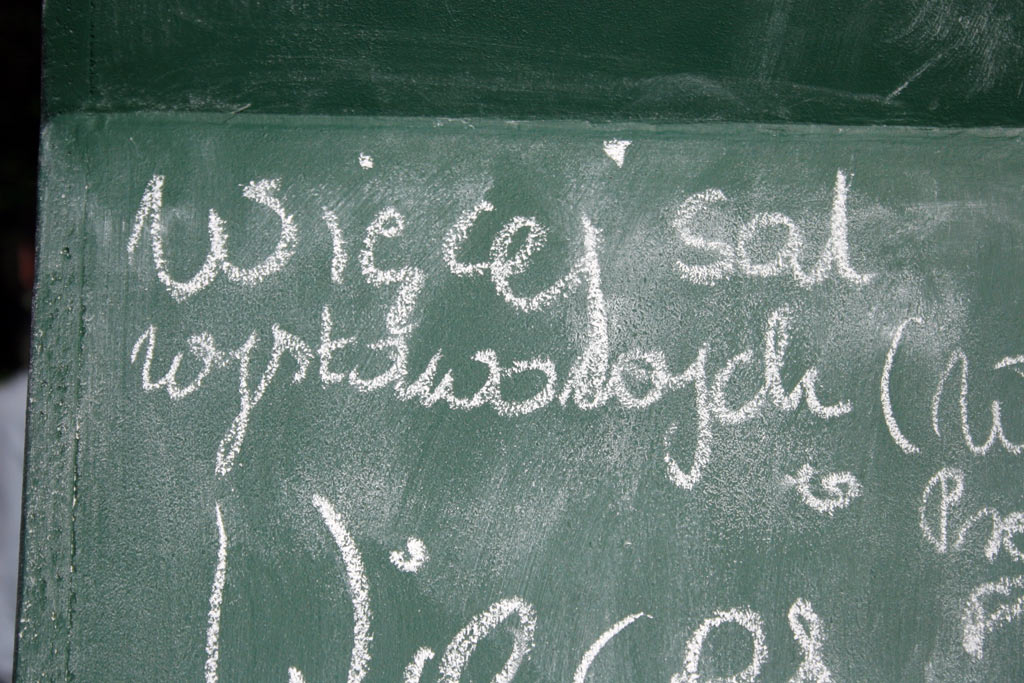 Więcej sal
wystawowych (
Więcej